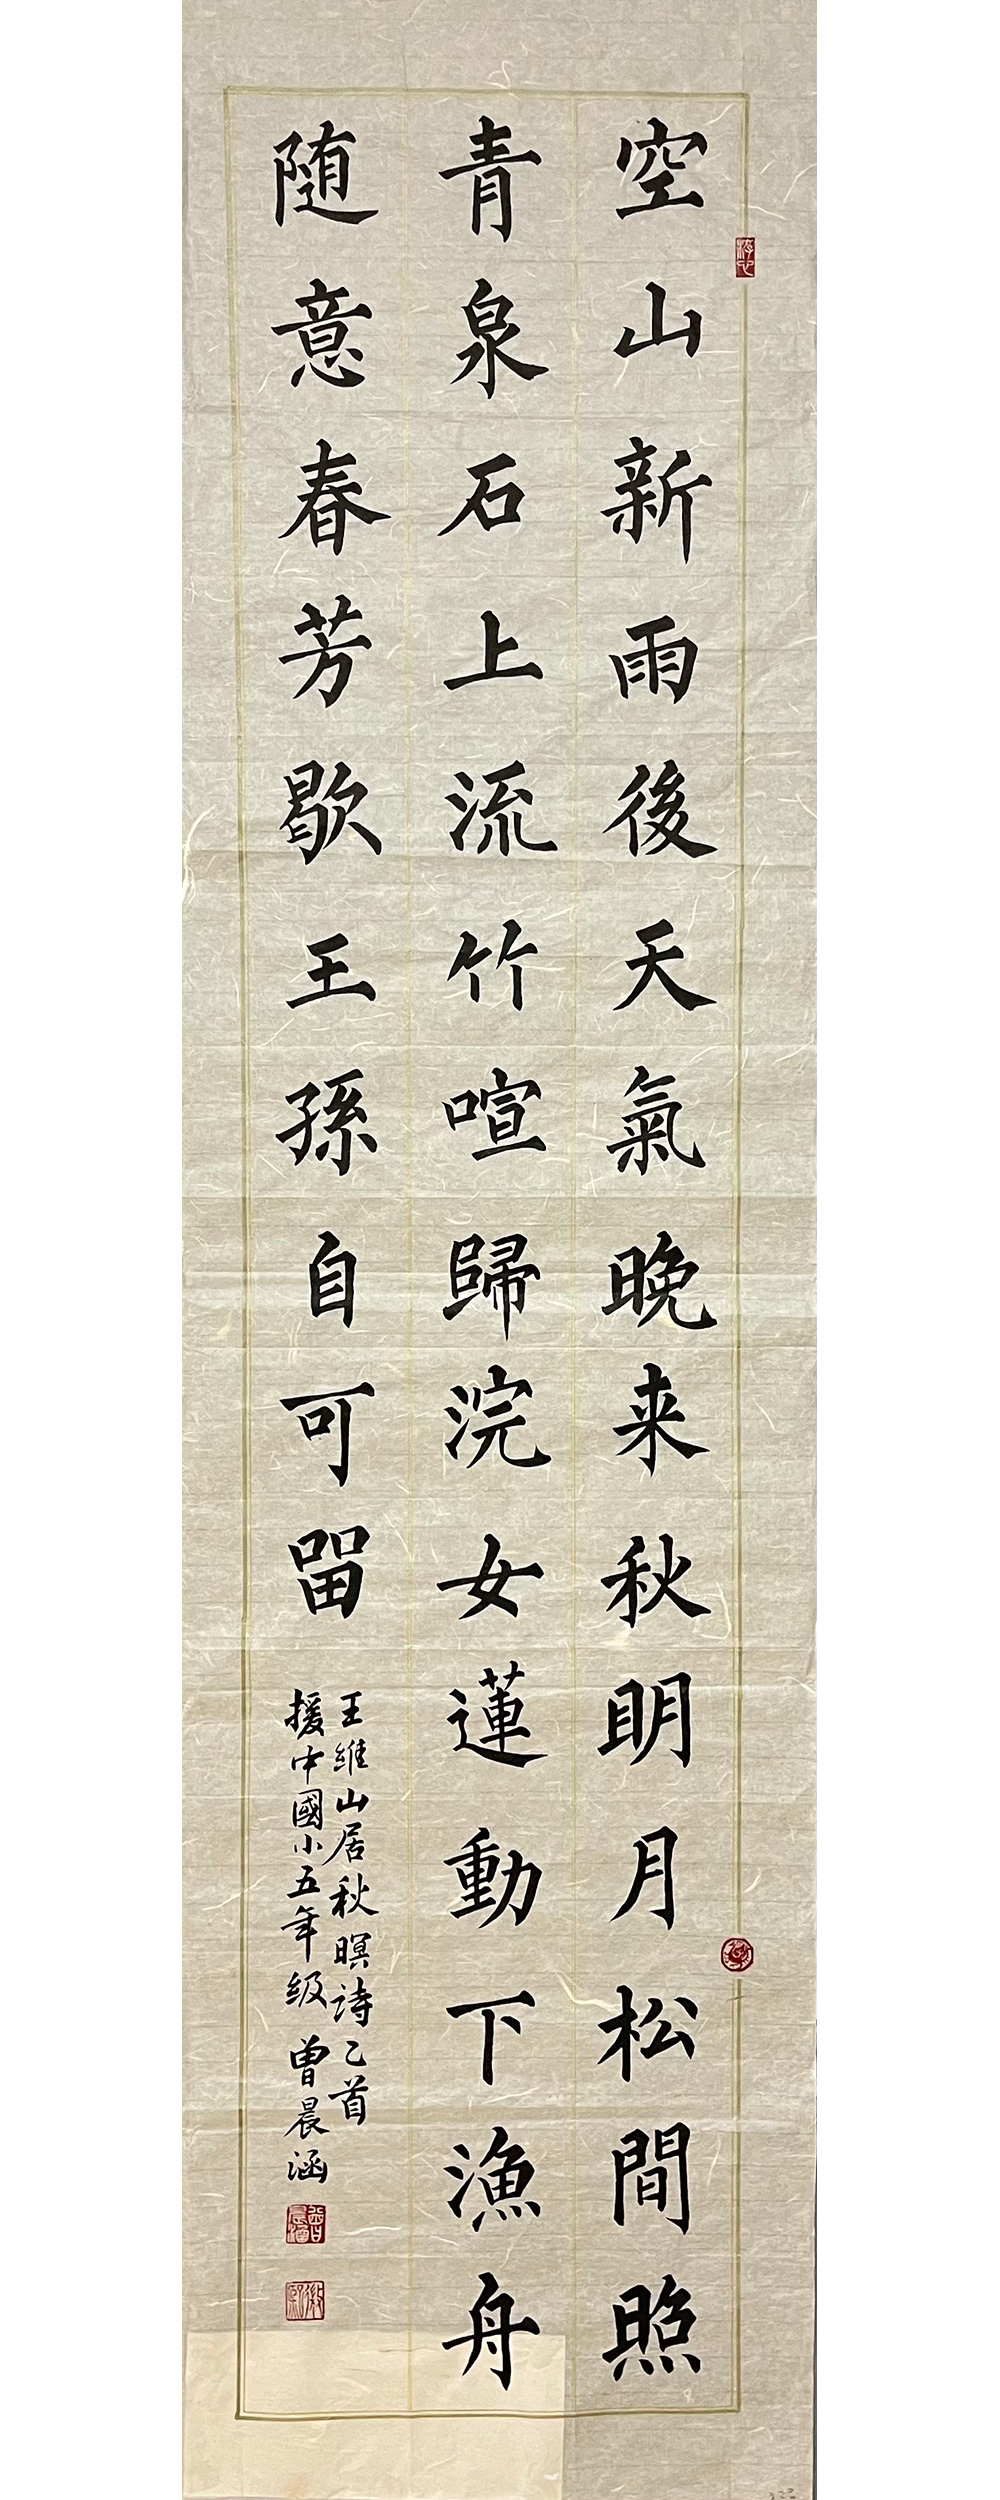 空山新雨後天氣晚来秋明月松間照
青泉石上流竹喧歸浣女蓮動下漁舟
随意春芳歇王孫自可留
王維山居秋暝詩乙首
援中國小五年级 曾晨涵